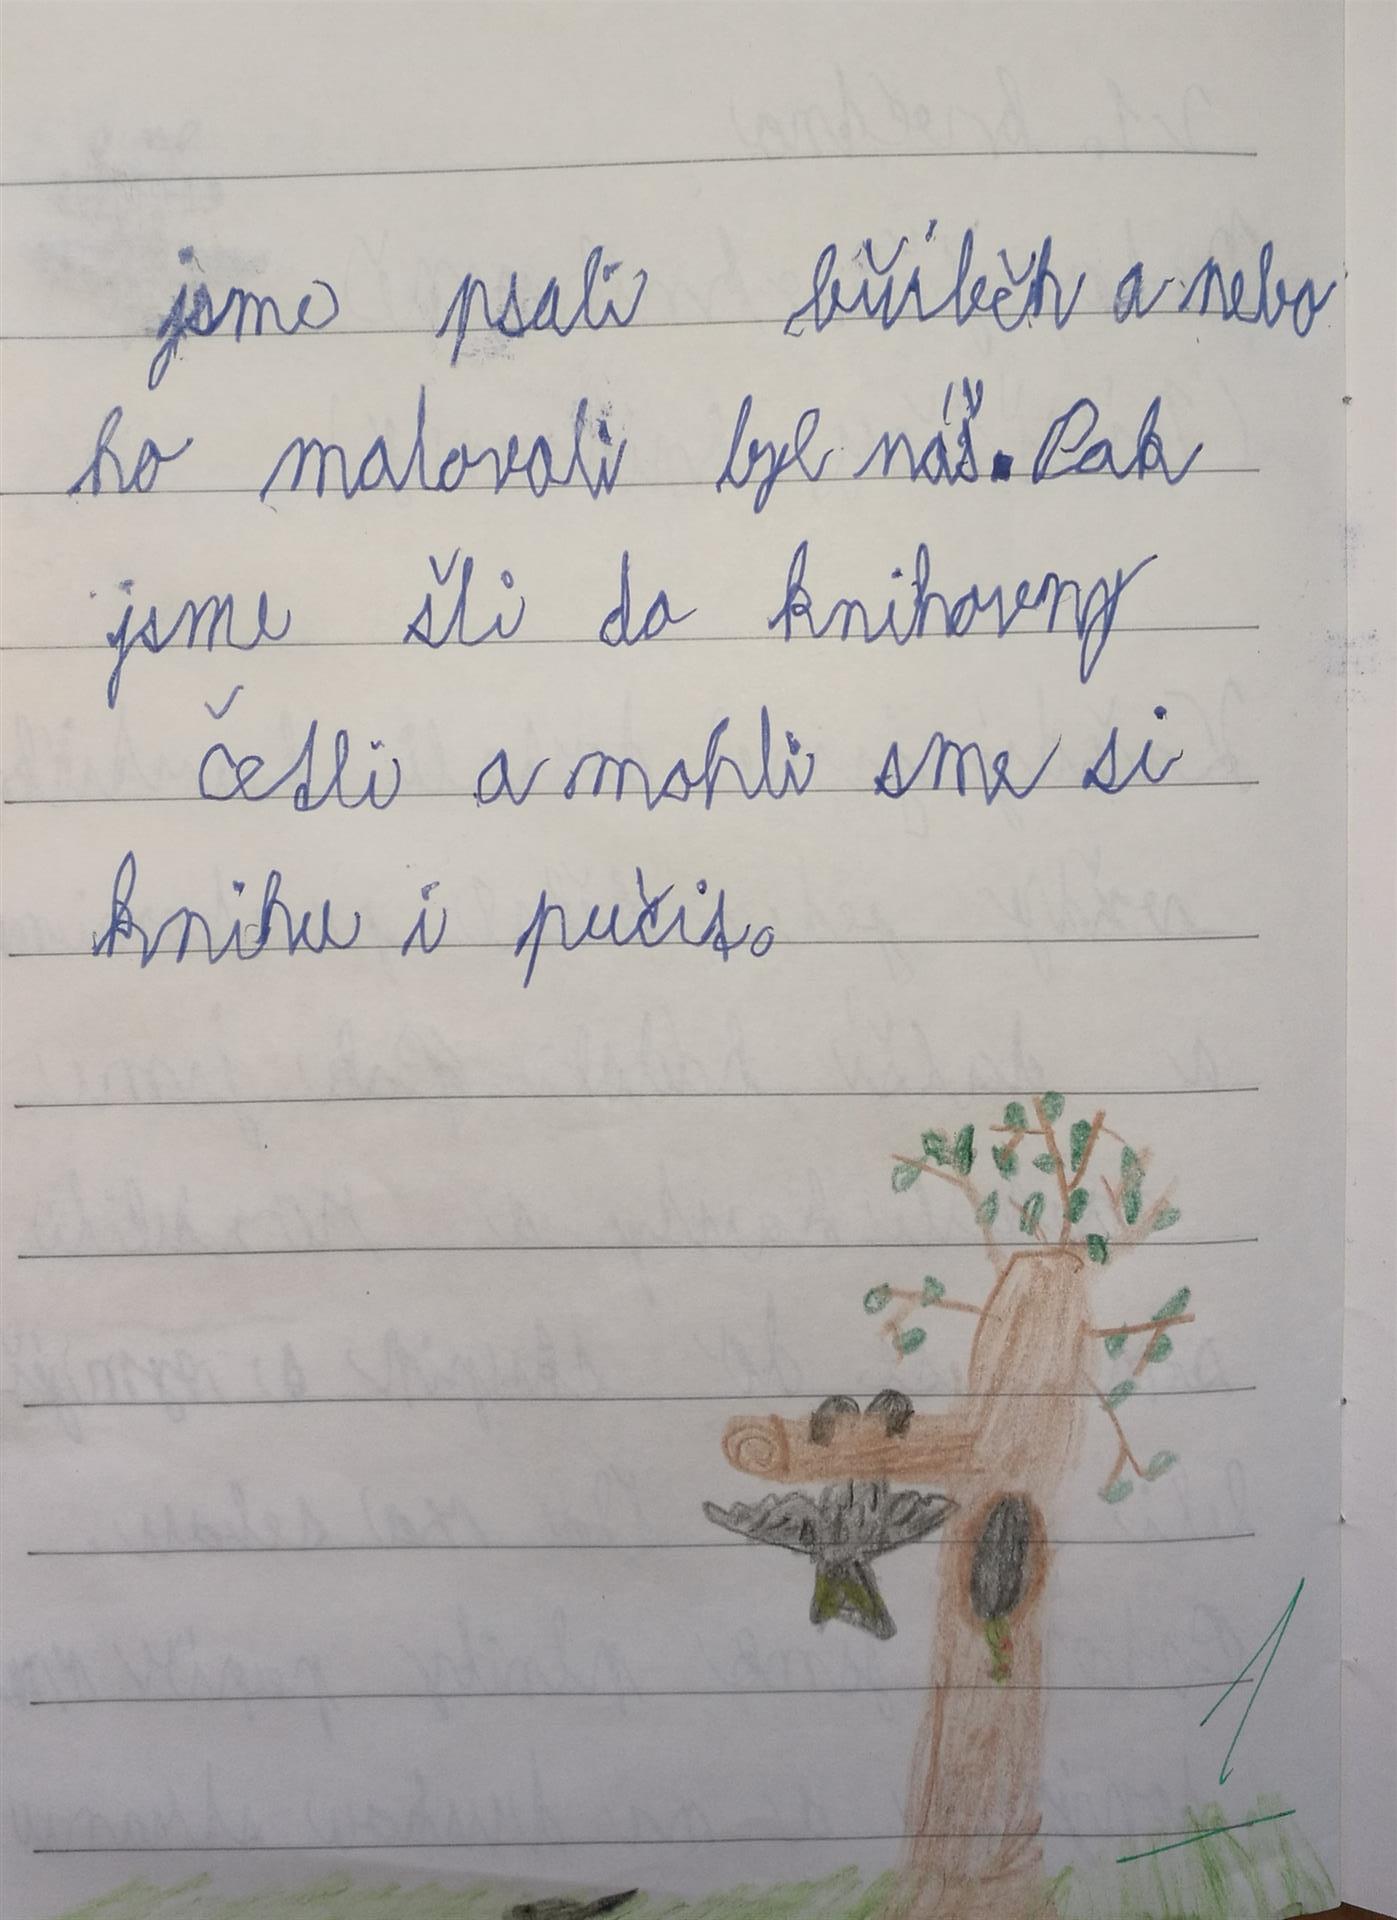 jsme psali bříběh a nebo
ho malovali byl náš. Pak
jsme šli do knihoveny
četli a mohli sme si
knihu i pučit.
1